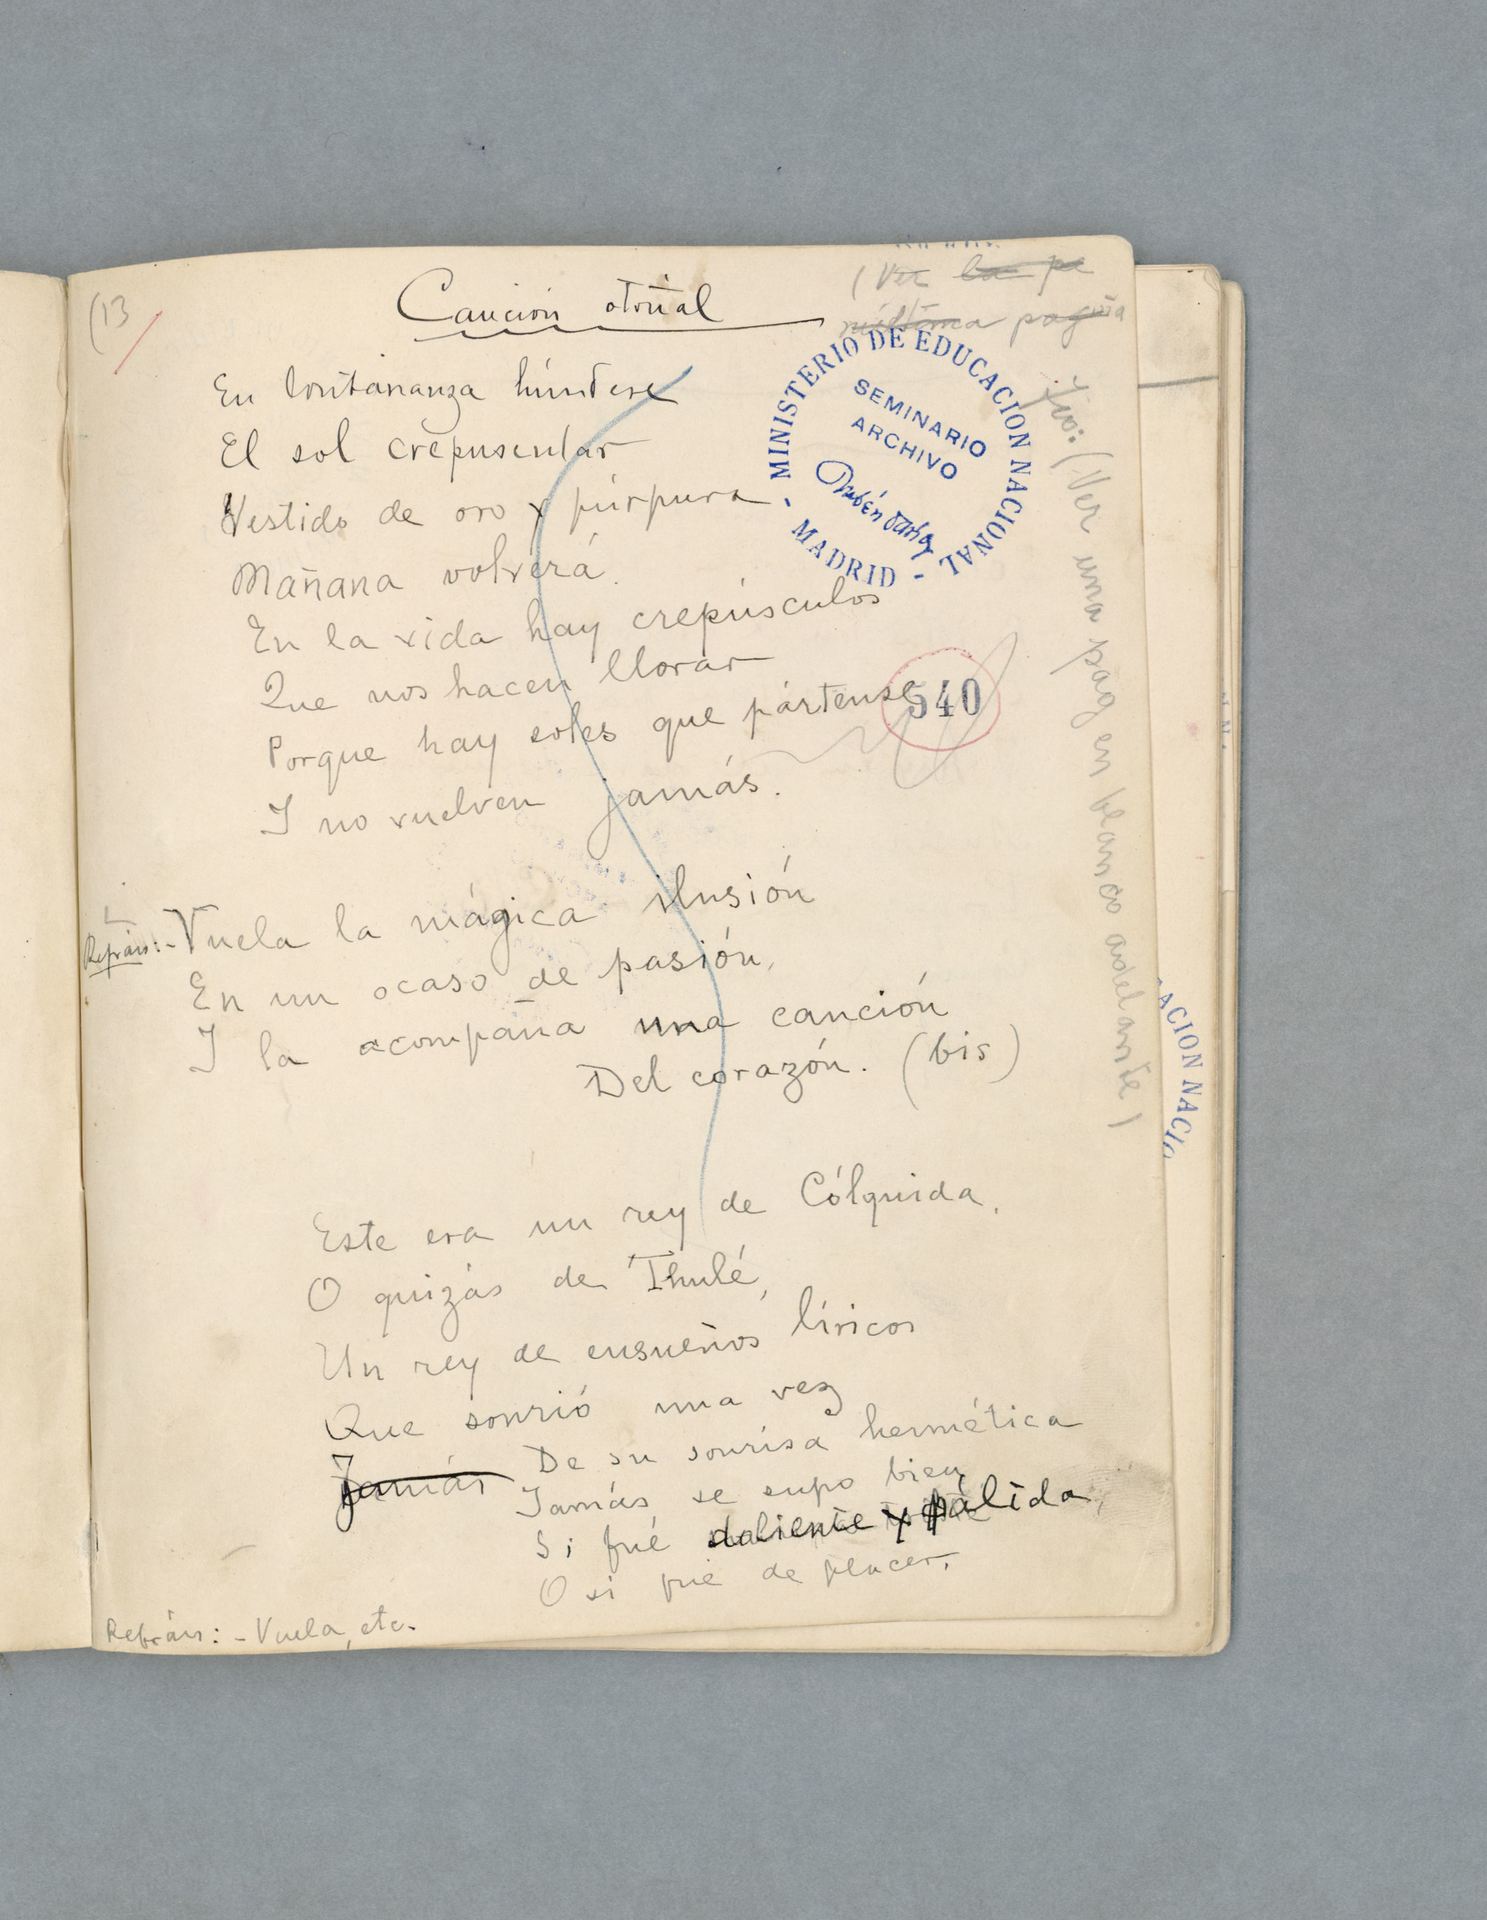 (13
Canción otoñal
(Ver la pe
núltima pagina
En lontananza húndese
El sol crepuscular
Vestido de oro y púrpura
Mañana volverá.
En la vida hay crepúsculos
Que nos hacen llorar
Porque hay soles que pártense
I no vuelven jamás.
Refráin:- Vuela la mágica ilusión
En un ocaso de pasión,
I la acompaña una canción
Del corazón. (bis)
Este era un rey de Cólquida,
O quizás de Thulé,
Un rey de ensueños líricos
Que sonrió una vez
Jamás De su sonrisa hermética
Jamás se supo bien
Si fué doliente y pálida,
O si fué de placer.
Refráin: - Vuela, etc.
(Ver una pag en blanco adelante)
MINISTERIO DE EDUCACION NACIONAL
- MADRID -
SEMINARIO
ARCHIVO
Rubén Darío
540
ACION NACI